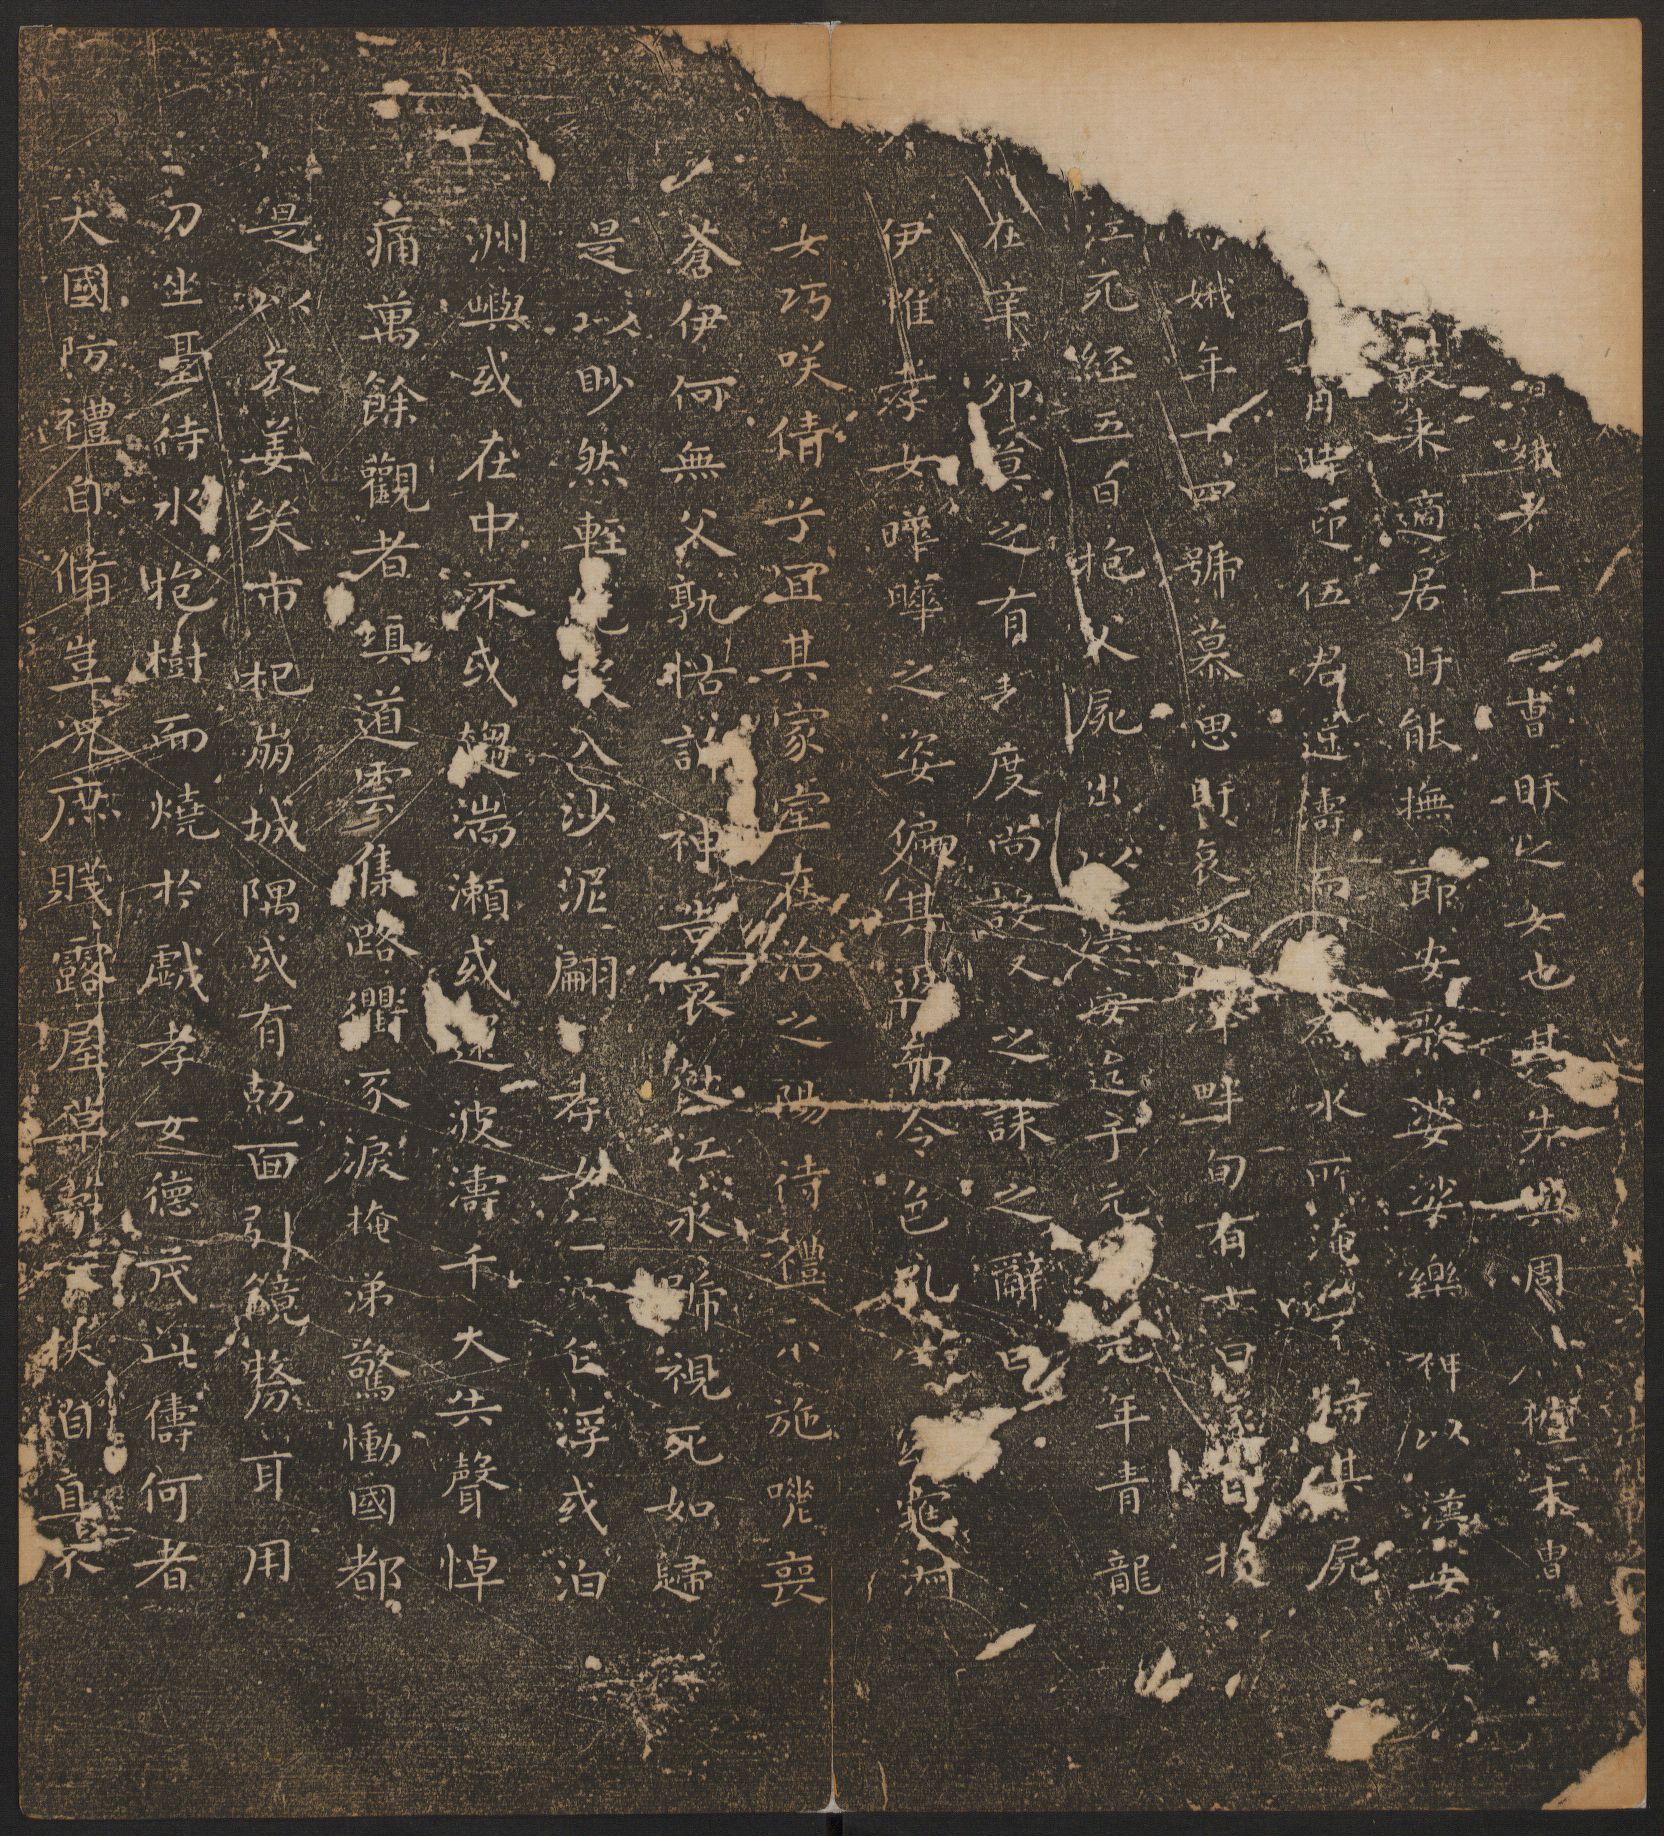 娥者上虞曹盱之女也其先與周同祖末胄
景来適居盱能撫節安歌婆娑樂神以漢安
月時迎伍君逆濤而上為水所淹不得其屍
娥年十四號慕思盱哀吟澤畔旬有七日遂自投
江死經五日抱父屍出以漢安迄于元嘉元年青龍
在辛卯莫之有表度尚設祭之誄之辭曰
伊惟孝女曄曄之姿偏其返而令色孔儀窈窕淑
女巧咲倩兮宜其家室在洽之陽待禮未施嗟喪
蒼伊何無父孰怙訴神告哀赴江永號視死如歸
是以眇然輕絕投入沙泥翩翩孝女乍沉乍浮或泊
洲嶼或在中流或趨湍瀬或還波濤千夫失聲悼
痛萬餘觀者填道雲集路衢泳淚掩涕驚慟國都
是以哀姜哭市杞崩城隅或有尅面引鏡剺耳用
刀坐臺待水抱樹而燒於戲孝女德茂此儔何者
大國防禮自脩豈況庶賤露屋草茅不扶自直不